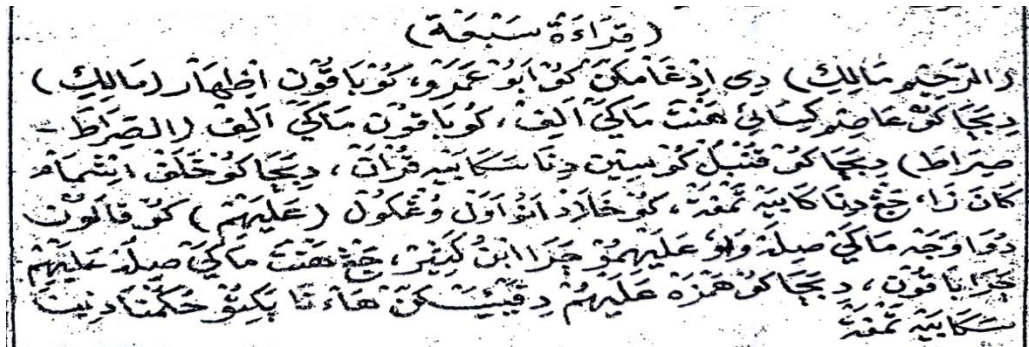 (قِرَاءَةْ سَبْعَةْ)
(الرَّحِيْمِ مَالِكِ) دي اِدْغَامكن كَوْ اَبُو عَمْرٍو، كَوْ بَاقَوْن اظْهَار (مَالِكِ)
دِبَچَا كَوْ عَاصِم كِسَائِ هَنْتَ مَاكَيْ اَلِفْ، كَوْ بَاقَوْن مَاكَيْ اَلِفْ (الصِّرَاطَ -
صِرَاطَ) دِبَچَا كَوْ قُنْبُلْ كَوْ سِيْن دِنَا سَكَابَيْه قُرْاٰنْ، دِبَچَا كَوْ خَلَفْ اِشْمَامْ
كَانَ زَا، حَڠْ دِنَا كَابَيْه تَمْفَةْ، كَوْ خَلَادْ اَنَوْ اَوَّلْ وُڠْكُولْ (عَلَيْهِمْ) كَوْ قَالَوْن
دُوَا وَجَهْ مَاكَيْ صِلَةْ وَاوْ عَلَيْهِمُوْ چَرَا ابْنُ كَثِيْر، حَڠْ هَنْتَ مَاكَيْ صِلَةْ عَلَيْهِمْ
چَرَا بَاقَوْن، دِبَچَا كَوْ حَمْزَهْ عَلَيْهُمْ دِڤَيْئَسَكَنْ هَاءْ نَا بَكِتَوْ حُكُمْنَا دِيْنَا
سَكَابَيْه تَمْفَةْ